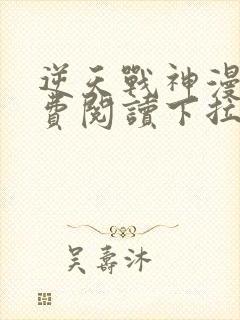 逆天戰神漫
費閱讀下拉
吳壽沐